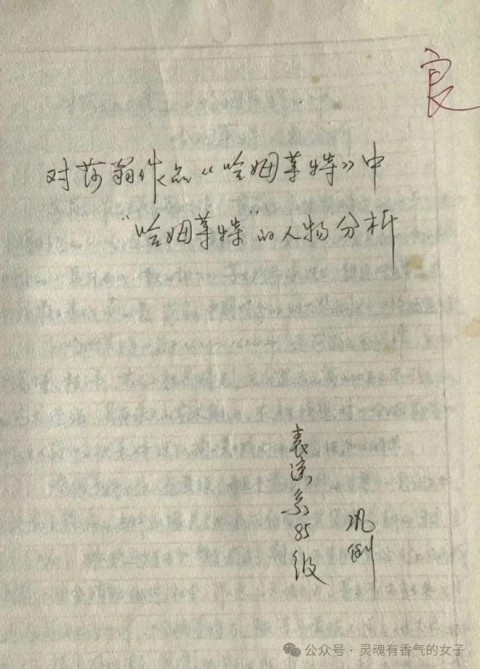 良
对莎翁作品《哈姆莱特》中
“哈姆莱特”的人物分析
表演系85级
巩俐
公众号·灵魂有香气的女子